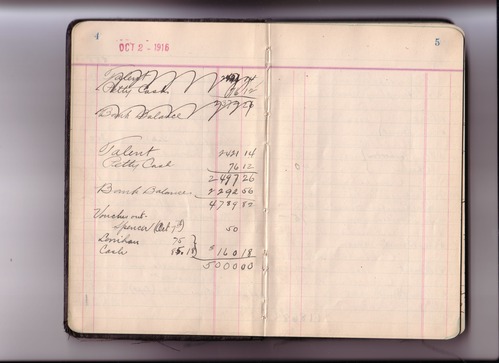 4
OCT 2 - 1916
5
Talent
Petty Cash 76 12
Bank Balance
Talent 2421 14
Petty Cash 76 12
2497 26
Bank Balance 2292 56
4789 82
Vouchers out
Spencer (Oct 7th) 50
75
Cash 85.18 $160 18
5000 00